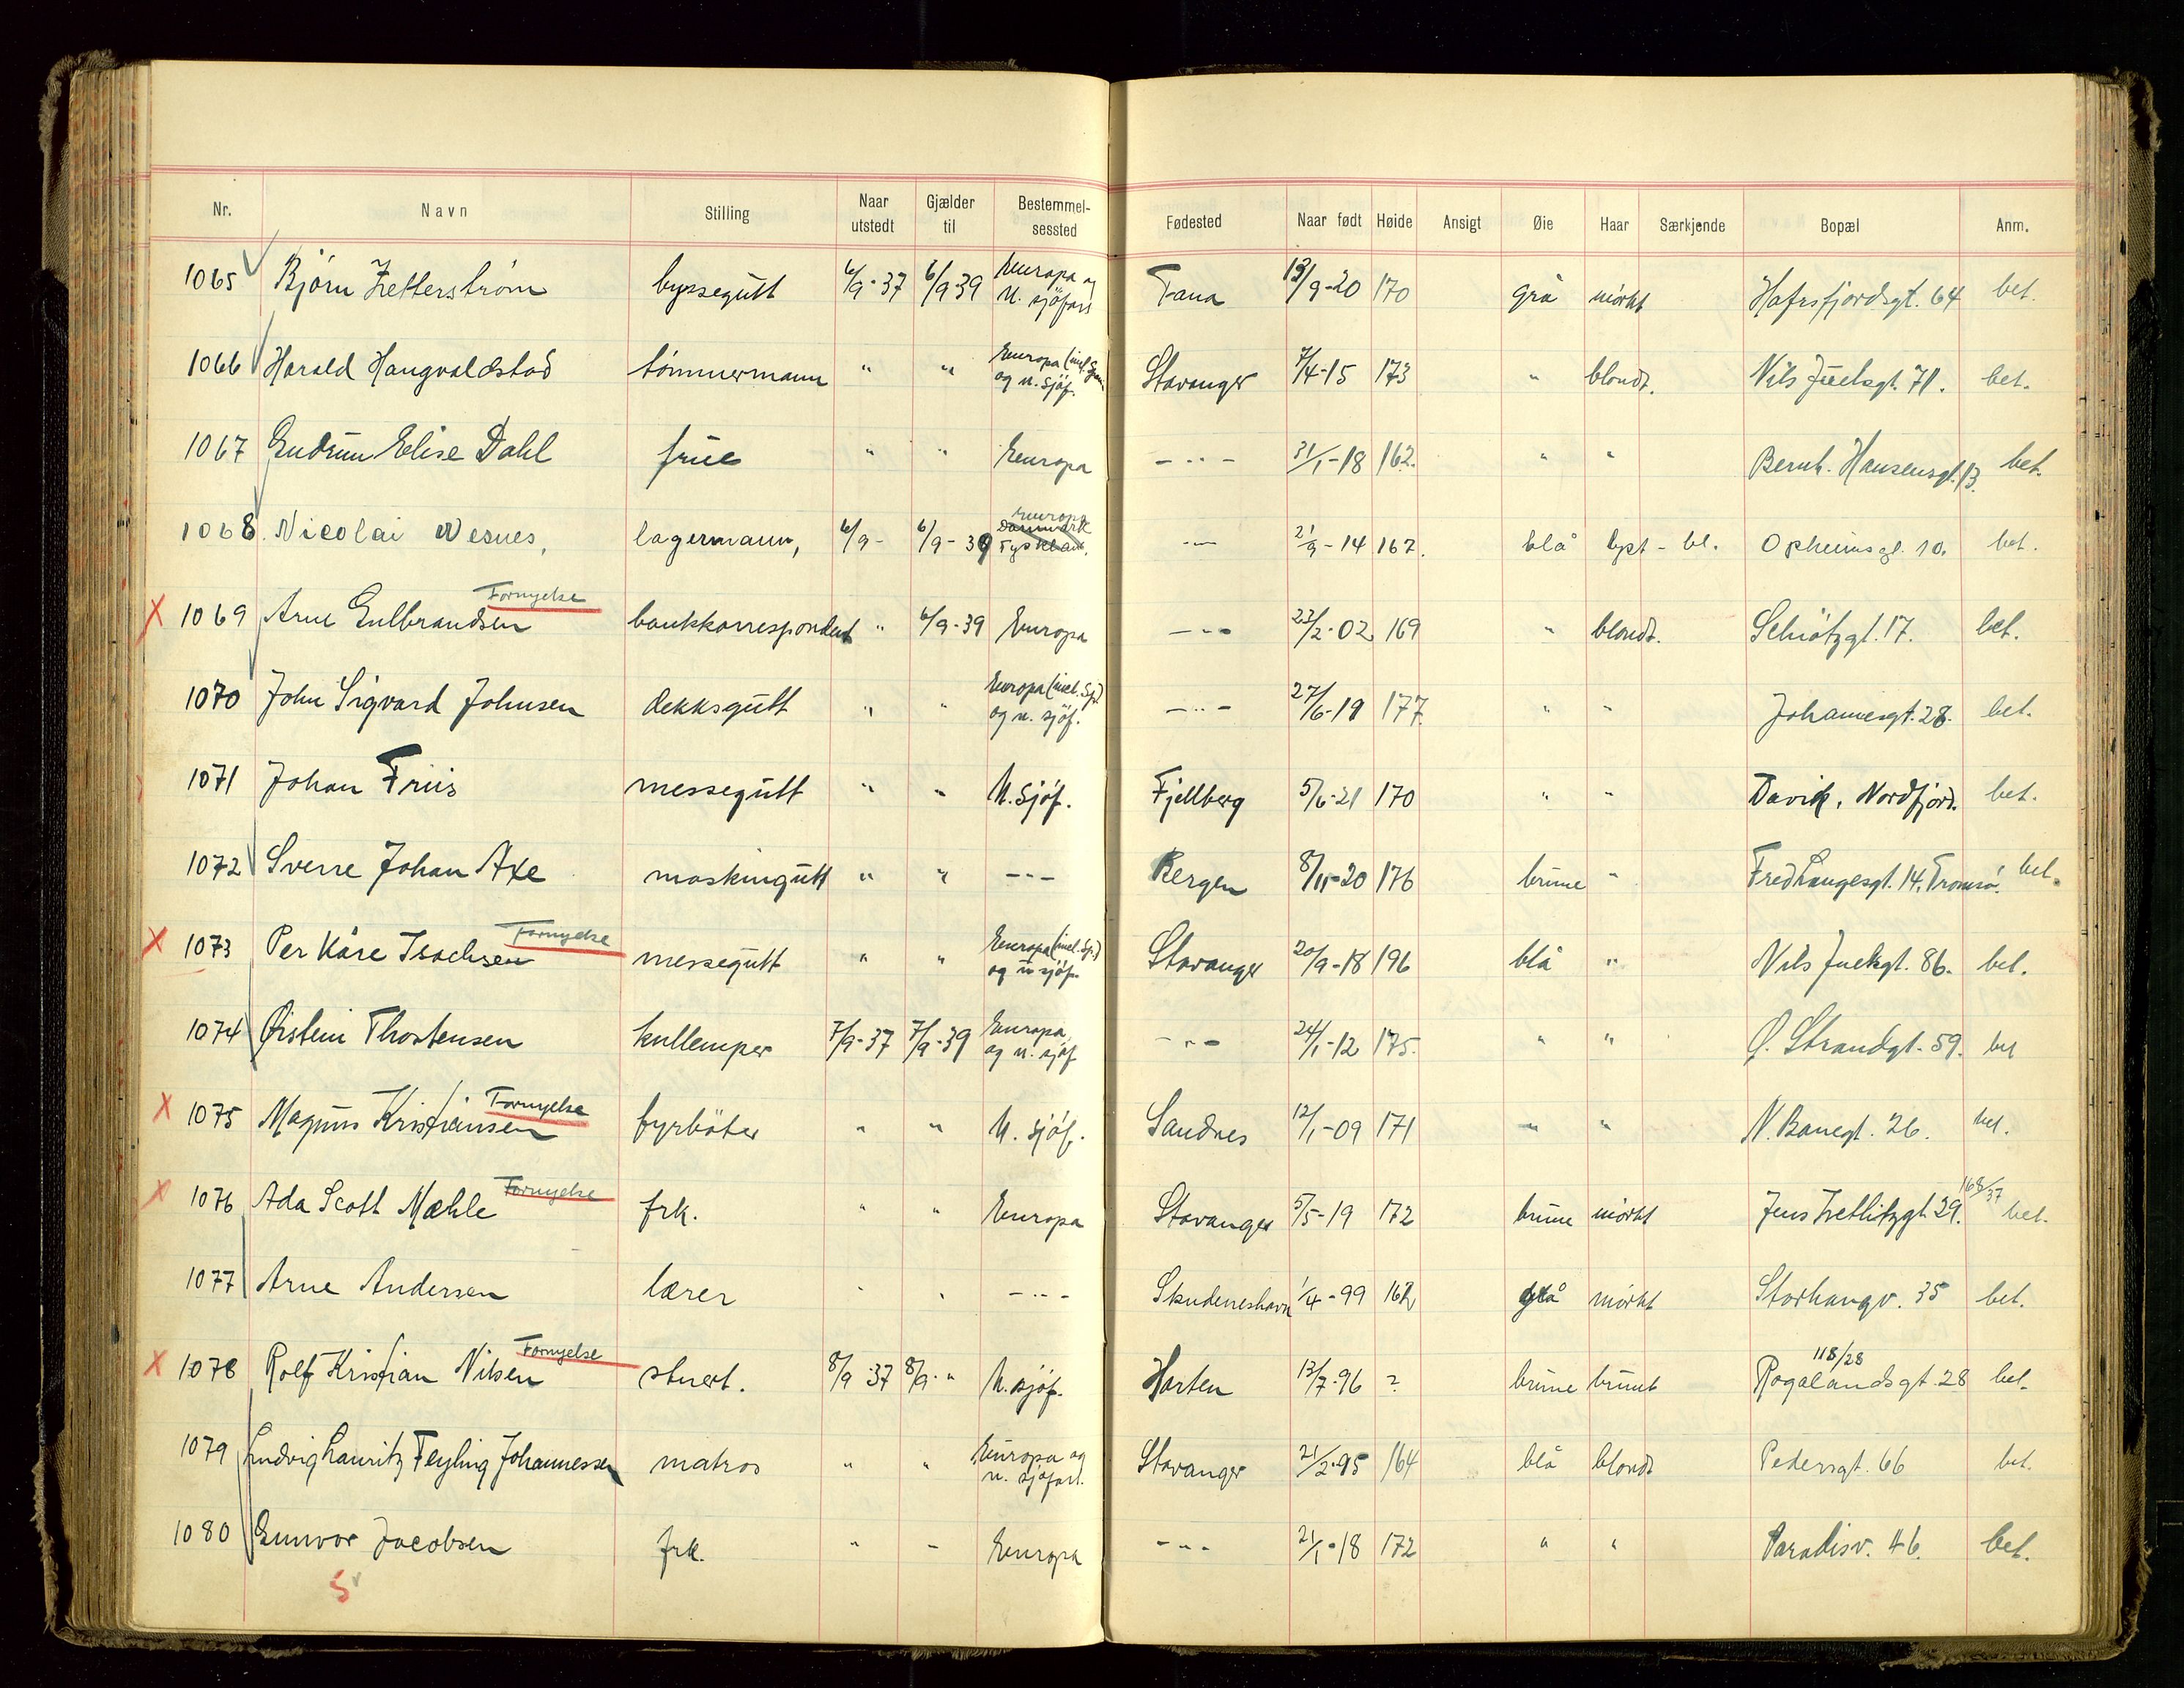 Nr. Navn Stilling Naar utstedt Gjælder til Bestemmel-sessted Fødested Naar født Høide Ansigt Øie Haar Særkjende Bopæl Anm.
1065 Bjørn Zetterstrøm byssegutt 6/9-37 6/9-39 Europa og u. sjöfart Fana 13/9-20 170 grå mörkt Hafrsfjordsgt. 64 bet.
1066 Harald Haugvaldstad tömmermann " " Europa (incl. og u. sjöf. Stavanger 7/4-15 173 " blondt. Nils Juelsgt. 71. bet.
1067 Gudrun Elise Dahl frue " " Europa - " - 31/1-18 162. " " Bernh. Hansensgt. 13. bet.
1068. Nicolai Vesnes, lagermann, 6/9- 6/9-39 Europa Danmark Tyskland. - - 2/9-14 167. blå lyst-bl. Opheimsgt. 10. bet.
Fornyelse
X 1069 Arne Gulbrandsen bankkorrespondent " 6/9-39 Europa - " - 22/2-02 169 " blondt. Schiötzgt. 17. bet.
1070 John Sigvard Johnsen dekksgutt " " Europa (incl. Sp.) og u. sjöf. - " - 27/6-19 177. " " Johannesgt. 28. bet.
1071 Johan Friis messegutt " " U. sjöf. Fjellberg 5/6-21 170 " " Davik, Nordfjord. bet.
1072 Sverre Johan Axe maskingutt " " - - - Bergen 8/11-20 176 brune " Fred Langesgt. 14, Tromsö. bet.
Fornyelse
X 1073 Per Kåre Isachsen messegutt " " Europa (incl. Sp.) og u. sjöf. Stavanger 20/9-18 196 blå " Nils Juelsgt. 86. bet.
1074 Øistein Thorstensen kullemper 7/9-37 7/9-39 Europa og u. sjöf - " - 24/1-12 175. " " Ø. Strandgt. 59. bet
Fornyelse
X 1075 Magnus Kristiansen fyrböter " " U. sjöf. Sandnes 12/1-09 171 " " N. Banegt. 26. bet.
Fornyelse
X 1076 Ada Scott Mæhle frk. " " Europa Stavanger 5/5-19 172 brune mörkt Jens Zetlitzgt. 29. 168/37 bet.
1077 Arne Andersen lærer " " - " - Skudeneshavn 1/4-99 162 mörkt Storhaugv. 35 bet.
Fornyelse
X 1078 Rolf Kristian Nilsen stuert. 8/9-37 8/9-" U. sjöf. Horten 13/7-96 ? brune brunt 118/28 Rogalandsgt. 28 bet.
1079 Ludvig Lauritz Feyling Johannessen matros " " Europa og u. sjöfart. Stavanger 21/2-95 164 blå blondt Pedersgt. 66 bet.
1080 Gunvor Jacobsen frk. " " Europa - " - 21/1-18 172 " " Paradisv. 46. bet.
5